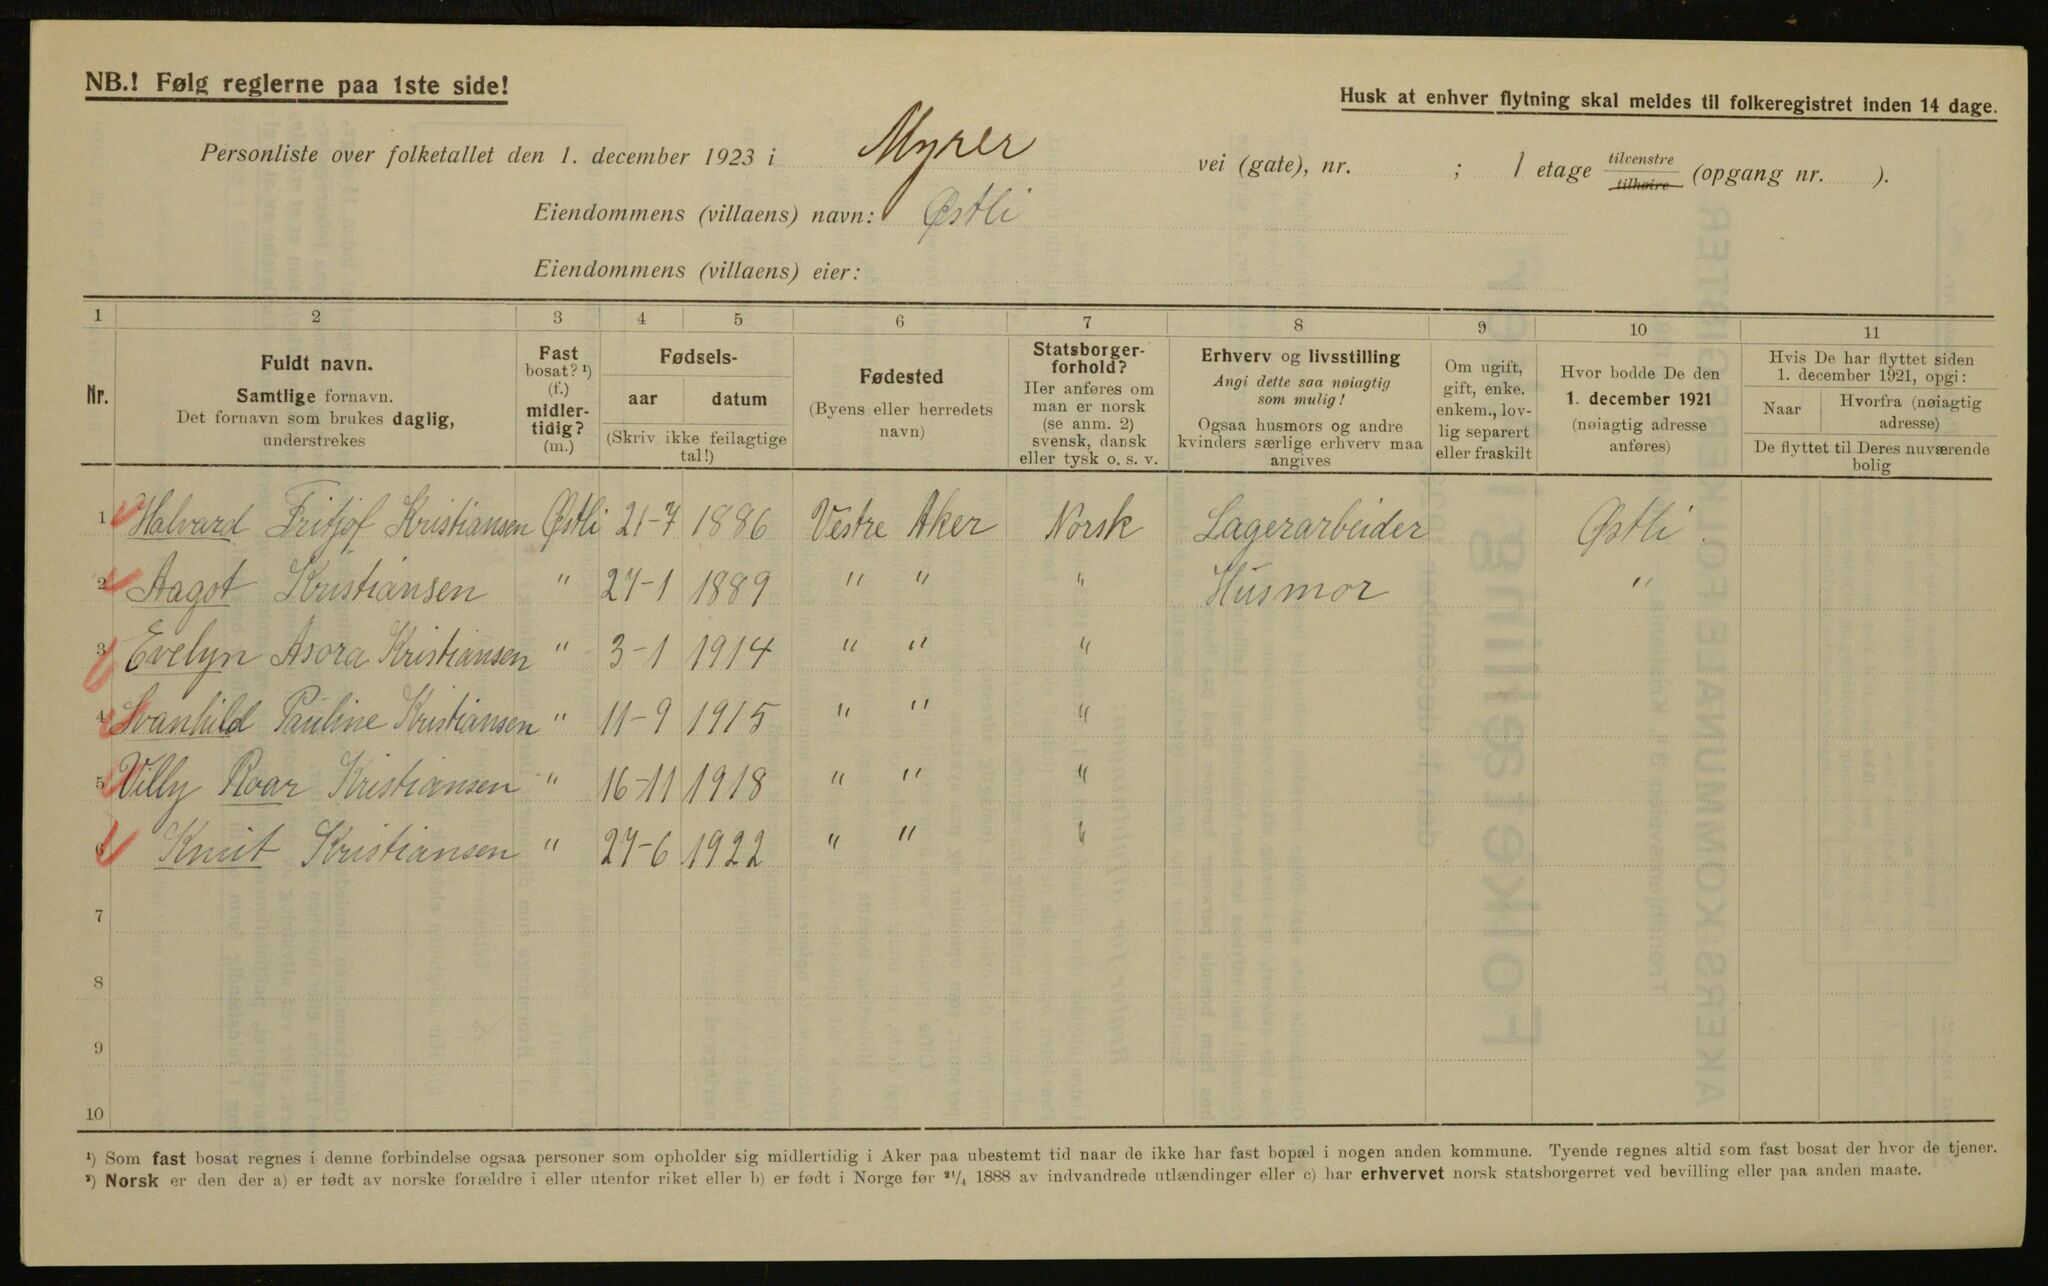 NB.! Følg reglerne paa 1ste side!
Husk at enhver flytning skal meldes til folkeregistret inden 14 dage.
Personliste over folketallet den 1. december 1923 i Myrer vei (gate), nr. ; 1 etage tilvenstre tilhøire (opgang nr. ).
Eiendommens (villaens) navn: Østli
Eiendommens (villaens) eier:
1 2 3 4 5 6 7 8 9 10 11
Nr.
Fuldt navn.
Samtlige fornavn.
Det fornavn som brukes daglig,
understrekes
Fast
bosat? ¹)
(f.)
midler-
tidig?
(m.)
Fødsels-
aar datum
(Skriv ikke feilagtige
tal!)
Fødested
(Byens eller herredets
navn)
Statsborger-
forhold?
Her anføres om
man er norsk
(se anm. 2)
svensk, dansk
eller tysk o. s. v.
Erhverv og livsstilling
Angi dette saa nøiagtig
som mulig!
Ogsaa husmors og andre
kvinders særlige erhverv maa
angives
Om ugift,
gift, enke.
enkem., lov-
lig separert
eller fraskilt
Hvor bodde De den
1. december 1921
(nøiagtig adresse
anføres)
Hvis De har flyttet siden
1. december 1921, opgi:
Naar
Hvorfra (nøiagtig
adresse)
De flyttet til Deres nuværende
bolig
1 Halvard Fritjof Kristiansen Østli 21-7 1886 Vestre Aker Norsk Lagerarbeider Østli
2 Aagot Kristiansen " 27-1 1889 " " " Husmor "
3 Evelyn Asora Kristiansen " 3-1 1914 " " "
4 Svanhild Pauline Kristiansen " 11-9 1915 " " "
5 Villy Roar Kristiansen " 16-11 1918 " " "
6 Knut Kristiansen " 27-6 1922 " " "
7
8
9
10
¹) Som fast bosat regnes i denne forbindelse ogsaa personer som opholder sig midlertidig i Aker paa ubestemt tid naar de ikke har fast bopæl i nogen anden kommune. Tyende regnes altid som fast bosat der hvor de tjener.
²) Norsk er den der a) er født av norske forældre i eller utenfor riket eller b) er født i Norge før ²¹/₄ 1888 av indvandrede utlændinger eller c) har erhvervet norsk statsborgerret ved bevilling eller paa anden maate.